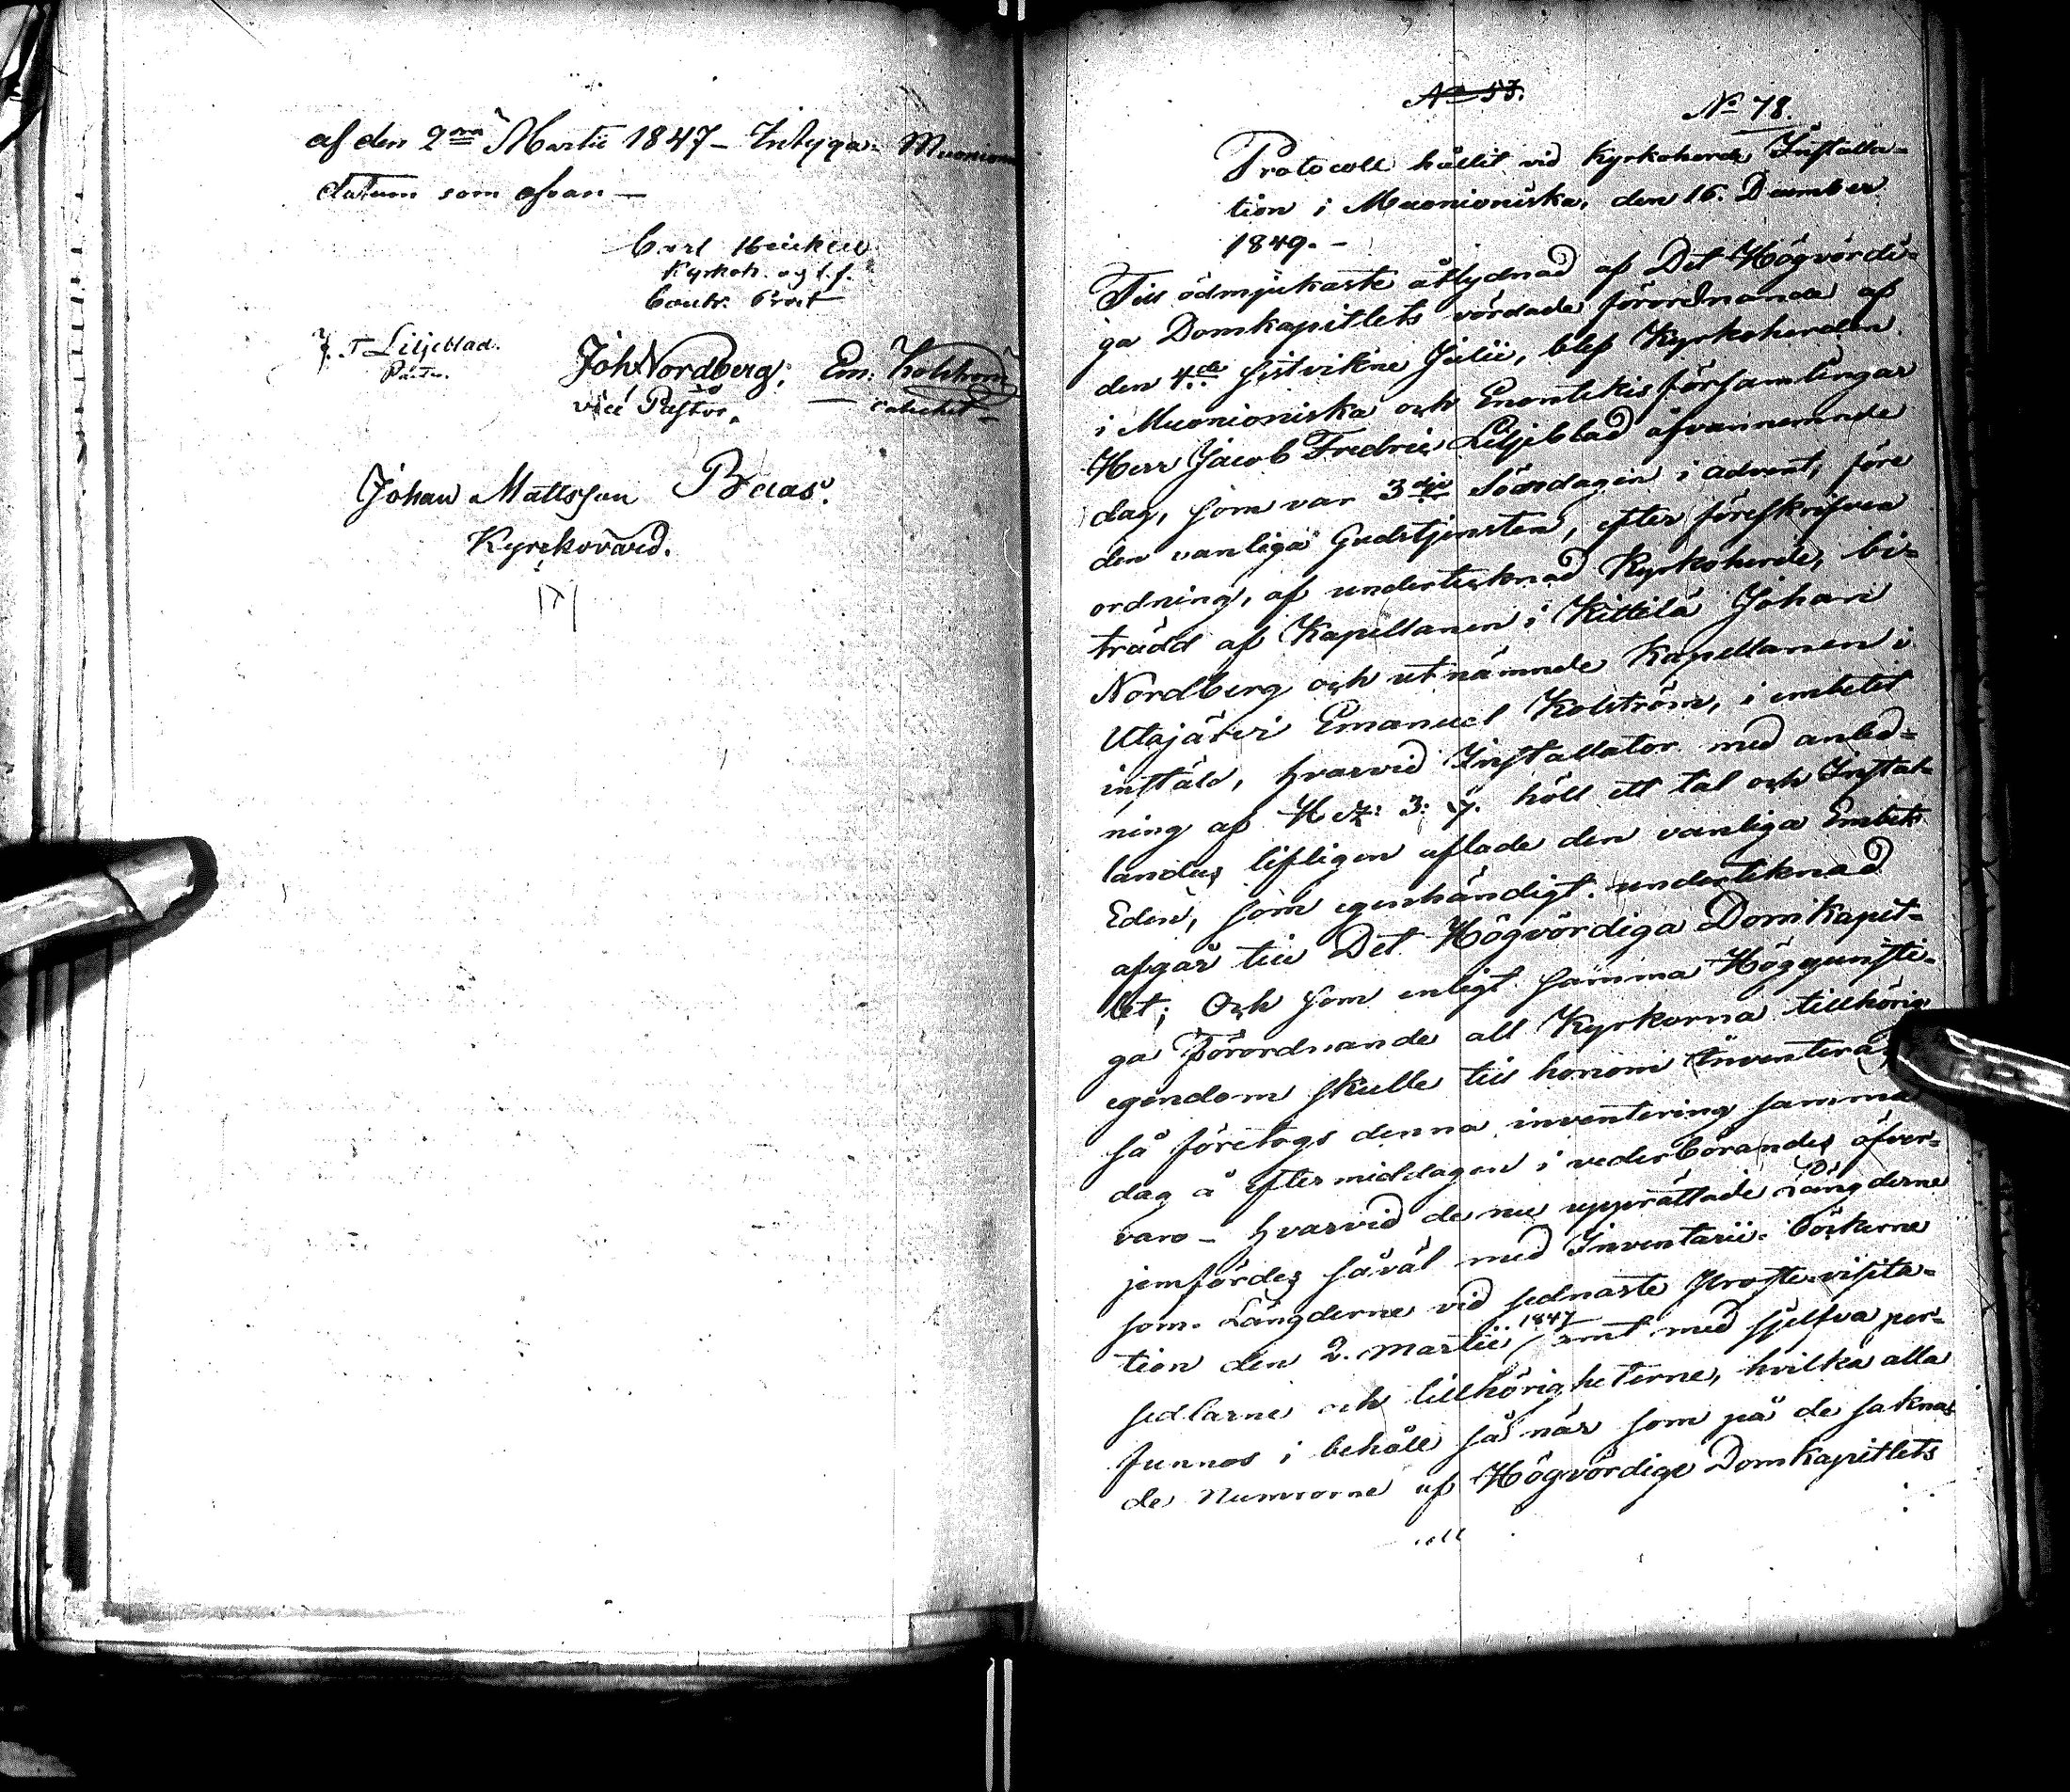 af den 2dra Martii 1847 – Intyga: Muonion
datum som ofvan –
Carl Heickell
Kyrkoh. og t.f.
Contr. Prost
J. F Liljeblad.
Pastor.
Joh Nordberg,
vice Pastor.
Em. Kolström
– catechet –
Johan Mattsson Baas.
Kyrkovärd.
No 53.
No 78.
Protocoll hållit vid Kyrkoherde Installa=
tion i Muonioniska, den 16. December
1849. –
Till ödmjukaste åtlydnad af Det Högvördi=
ga Domkapitlets vördade förordnande af
den 4de sistvikne Julii, blef Kyrkoherden
i Muonioniska och Enontekis församlingar
Herr Jacob Fredric Liljeblad ofvannemnde
dag, som var 3dje Söndagen i advent, före
den vanliga Gudstjensten, efter föreskrifven
ordning, af undertecknad Kyrkoherde, bi=
trädd af Kapellanen i Kittilä Johan
Nordberg och utnämnde Kapellanen i
Utajärvi Emanuel Kolström, i embetet
inställd, hvarvid Installator med anled=
ning af Hez: 3: höll ett tal och Instal=
landus lifligen aflade den vanliga Embets
Eden, som egenhändigt underteknad
afgår till Det Högvördiga Domkapit=
let; Och som enligt samma Höggunsti=
ga Förordnande all Kyrkorna tillhörig
egendom skulle till honom inventeras,
så företogs denna inventering samma
dag å eftermiddagen i vederbörandes öfver=
varo – hvarvid de nu upprättade längderne
jemfördes såväl med Inventarii-Böckerne
som Längderne vid sednaste Proste-visita=
tion den 2. Martii 1847 samt med sjelfva per=
sedlarne och tillhörigheterne, hvilka alla
funnos i behåll så när som på de saknas
de numrorne af Högvördige Domkapitlets